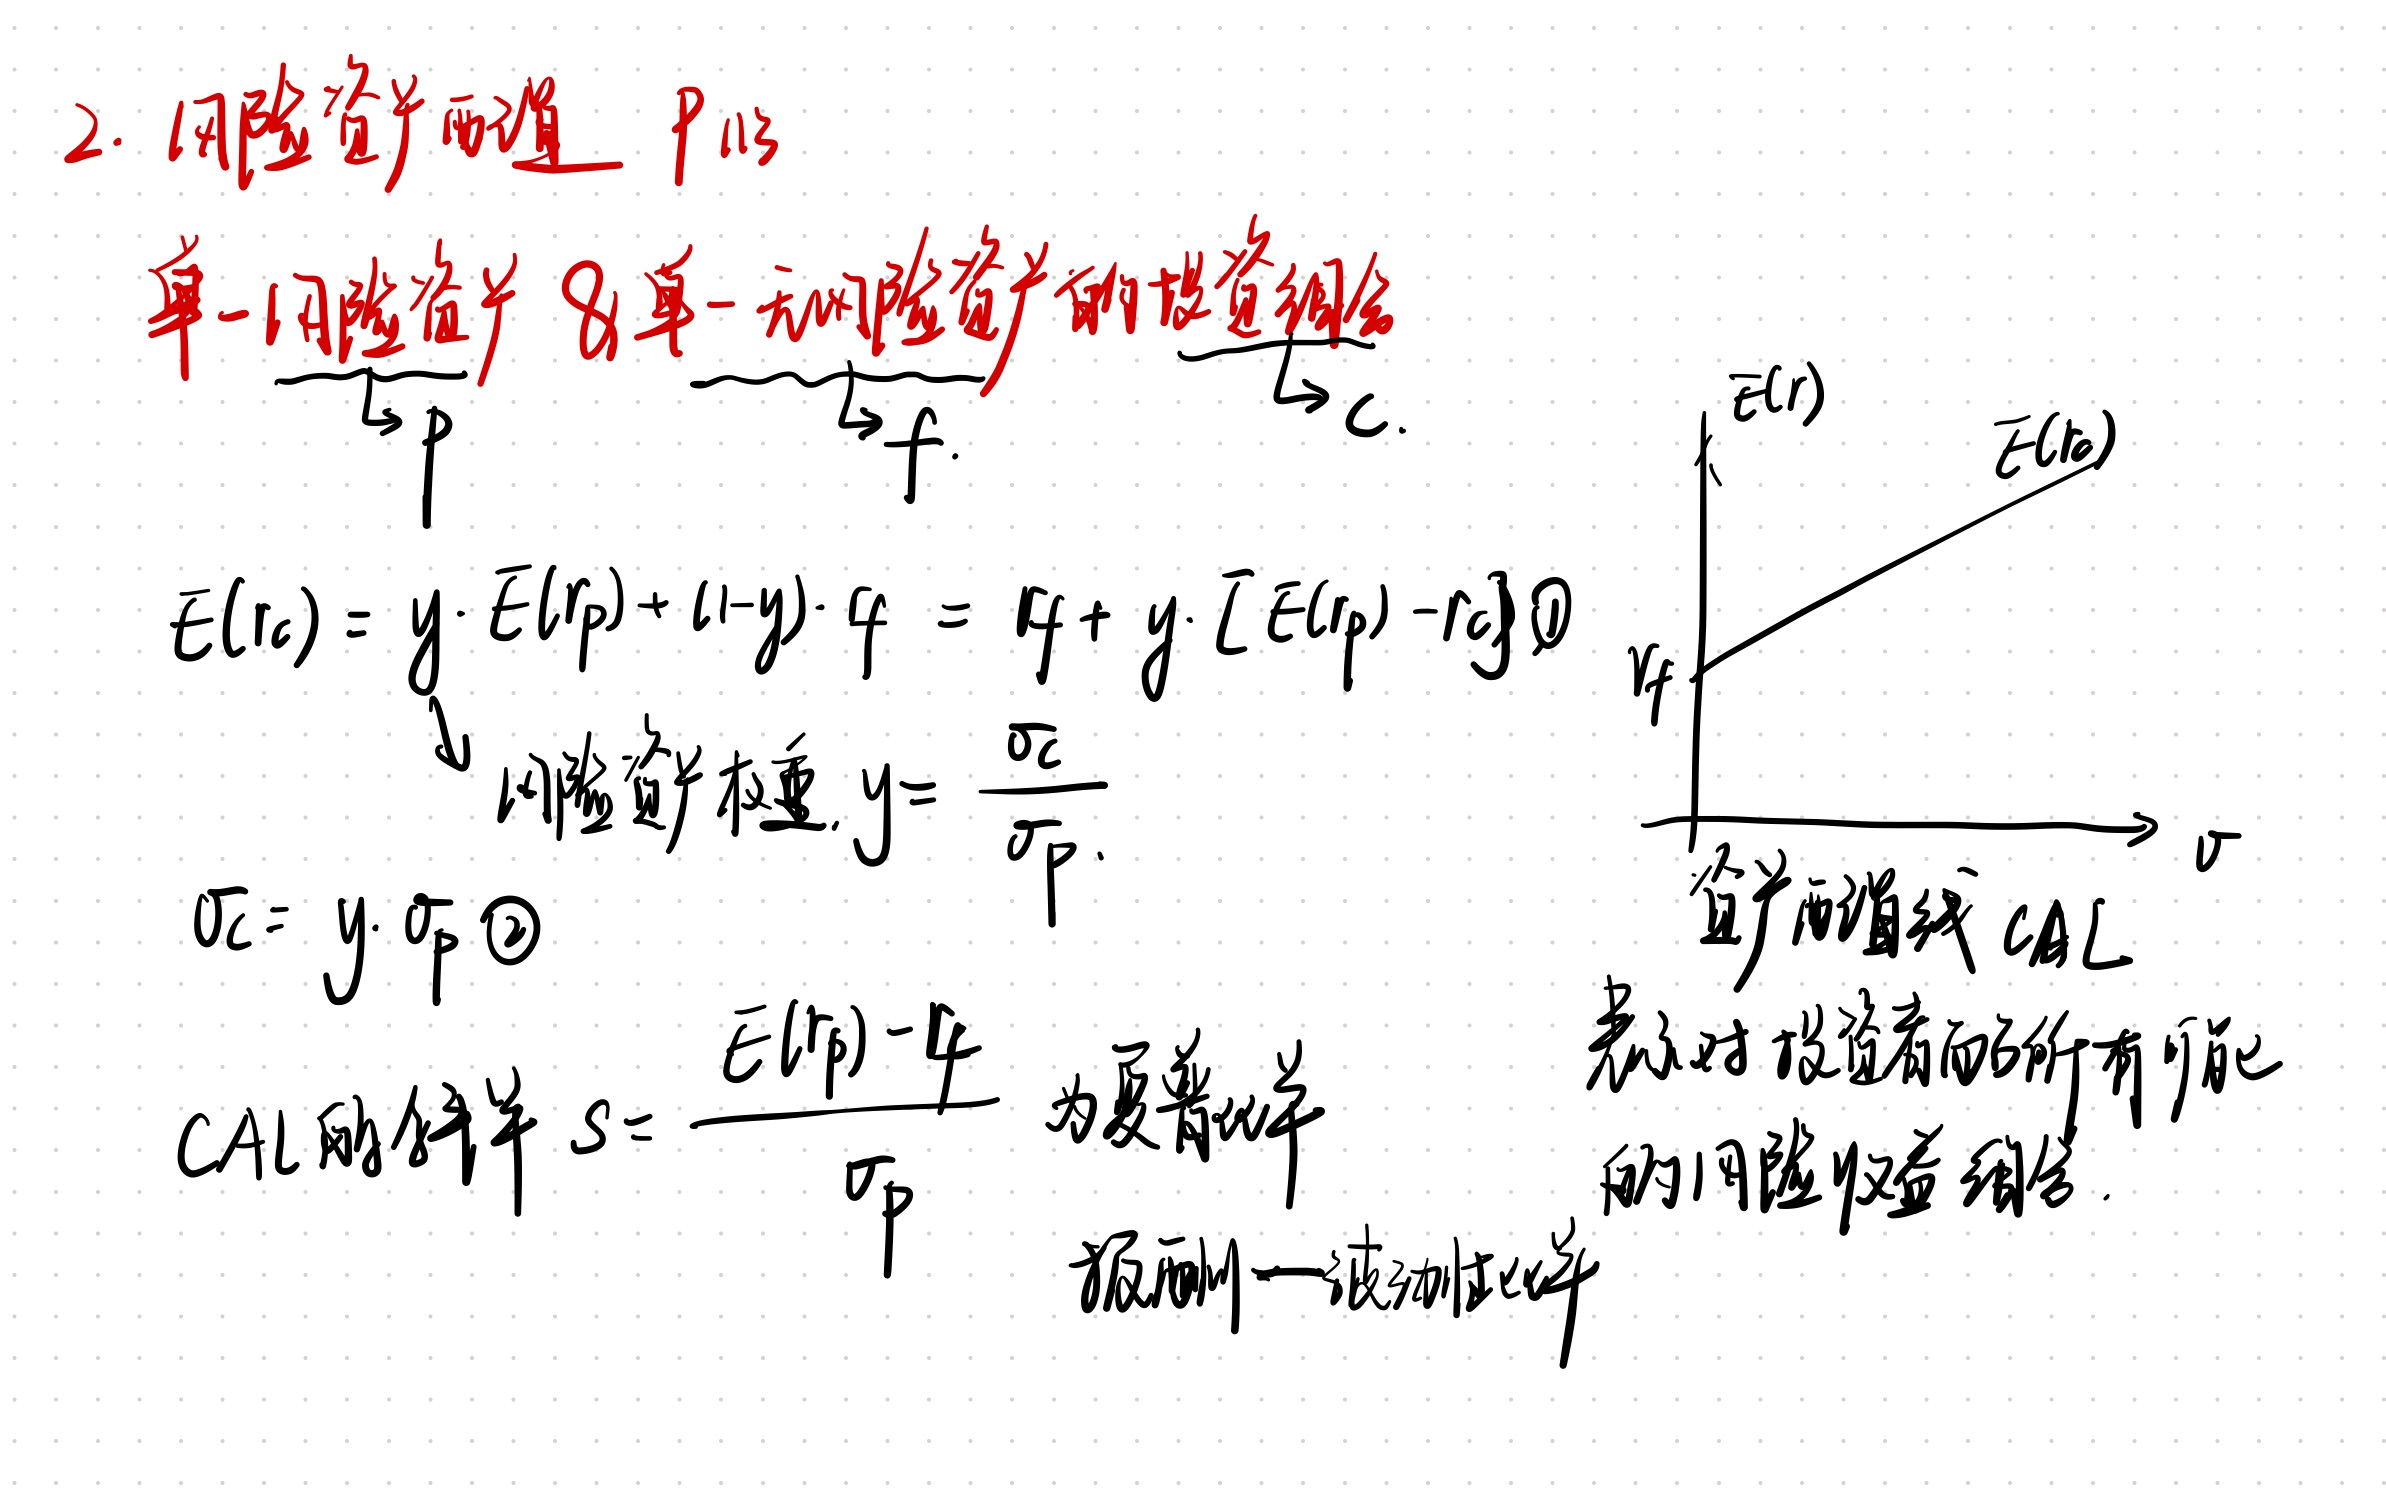 2. 风险资产配置 P115
单一风险资产 & 单一无风险资产的投资组合
p
f.
c.
E(rc) = y · E(rp) + (1-y) · f = rf + y · [E(rp) - rc] ①
风险资产权重. y = σc / σp.
σc = y · σp ②
CAL的斜率 S = E(rp) - rf / σp 为夏普比率
报酬—波动性比率
E(r)
E(rc)
rf
σ
资产配置线 CAL
表示对投资者而言所有可能
的风险收益组合.